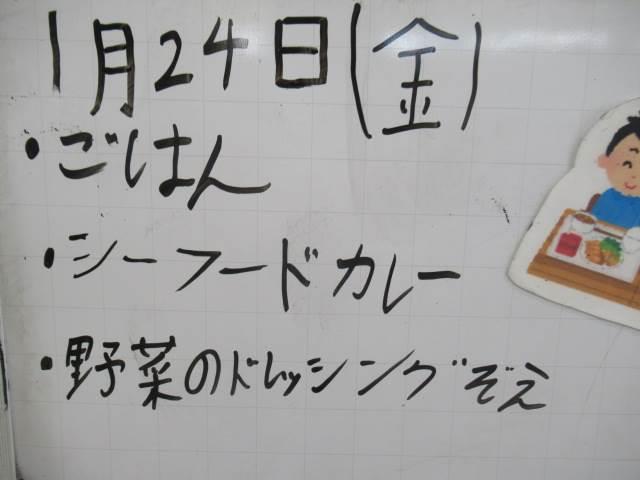 1月24日(金)
・ごはん
・シーフードカレー
・野菜のドレッシングぞえ